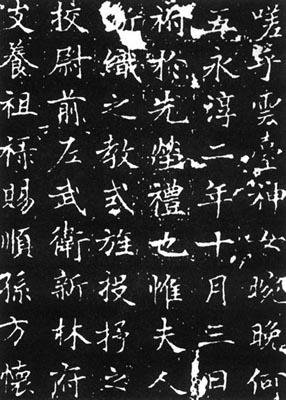 嗟乎雲臺神女晼晚何
五永淳二年十月三日
祔於先塋禮也惟夫人
斷織之教式旌授揥之
校尉前左武衛新林府
支養祖祿賜順孫方懷